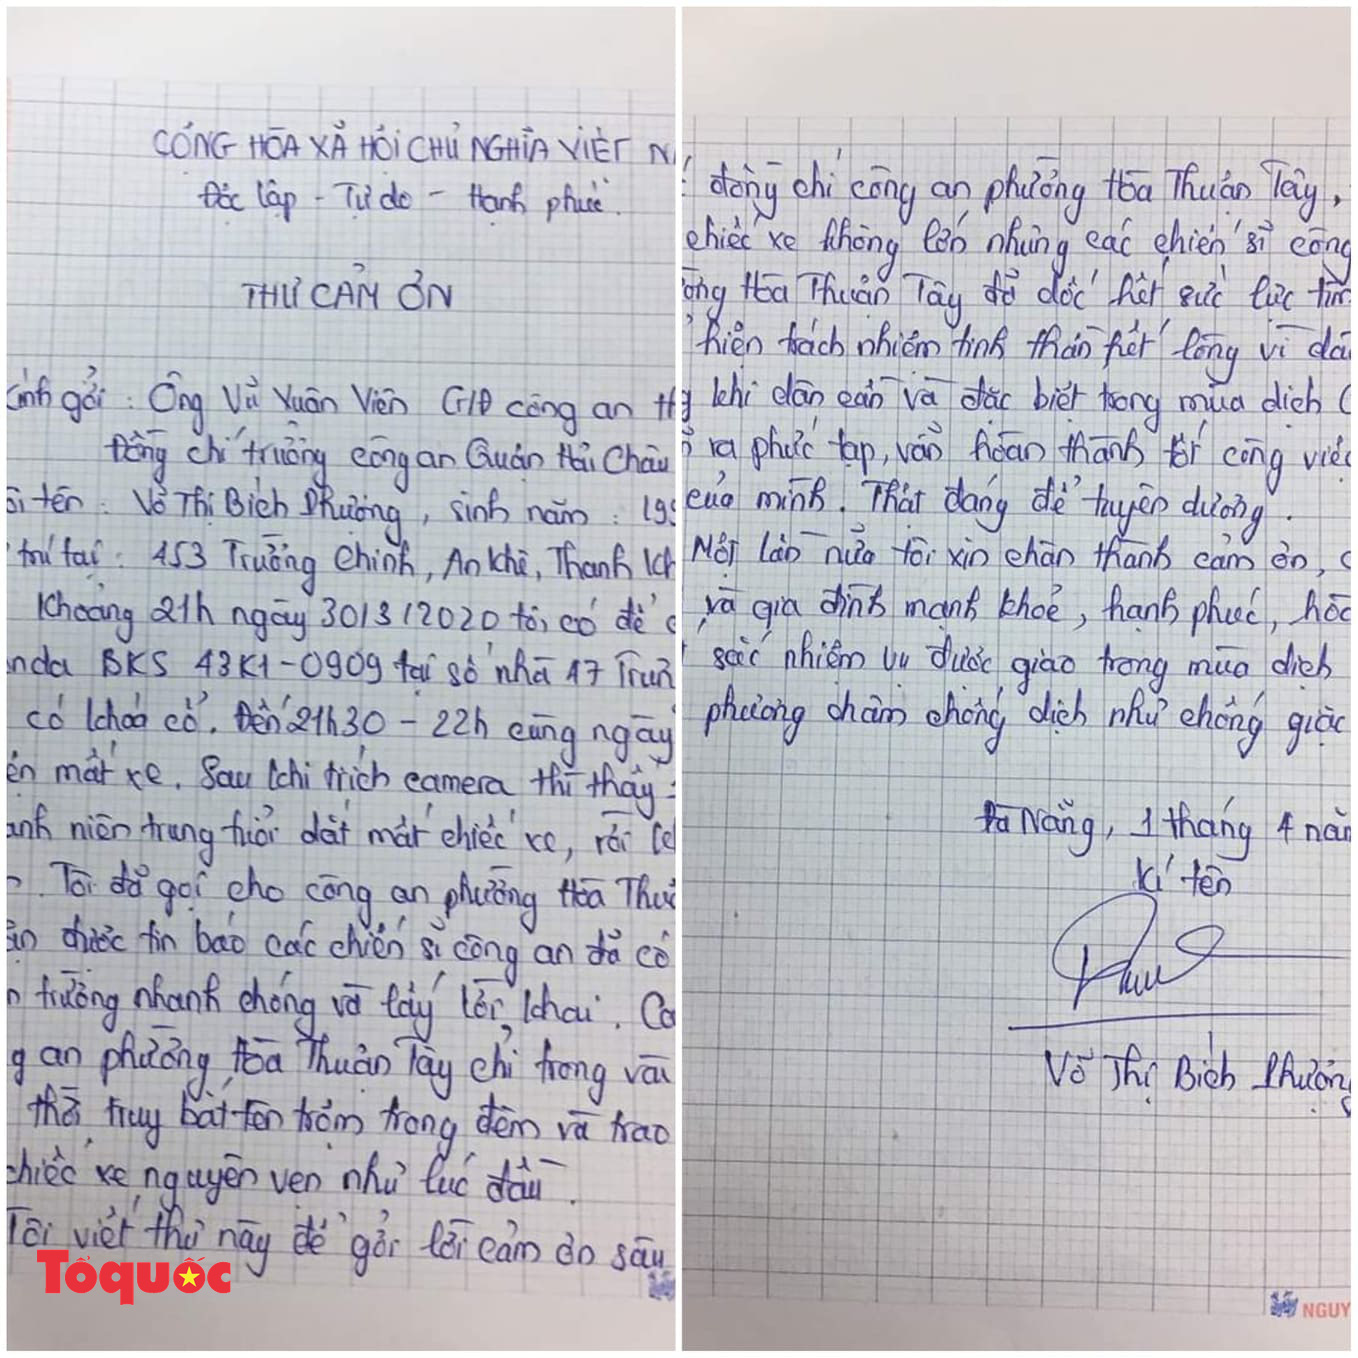 CỘNG HÒA XÃ HỘI CHỦ NGHĨA VIỆT N
Độc lập - Tự do - Hạnh phúc.
THƯ CẢM ƠN
Kính gởi : Ông Vũ Xuân Viên GĐ công an th
Đồng chí trưởng công an Quận Hải Châu
ôi tên : Võ Thị Bích Phượng, sinh năm : 199
trú tại : 453 Trường Chinh, An Khê, Thanh Kh
Khoảng 21h ngày 30/3/2020 tôi có để c
nda BKS 43K1-0909 tại số nhà 17 Trưn
có khóa cổ. Đến 21h30 - 22h cùng ngày
ện mất xe. Sau khi trích camera thì thấy
anh niên trung tuổi dắt mất chiếc xe, rồi le
. Tôi đã gọi cho công an phường Hòa Thuậ
ận được tin báo các chiến sĩ công an đã có
n trường nhanh chóng và lấy lời khai. Co
g an phường Hòa Thuận Tây chỉ trong vài
thờ truy bắt tên trộm trong đêm và trao
chiếc xe nguyên vẹn như lúc đầu.
Tôi viết thư này để gởi lời cảm ơn sâu
Tổ quốc
đồng chí công an phường Hòa Thuận Tây,
chiếc xe không lớn nhưng các chiến sĩ công
ờng Hòa Thuận Tây đã dốc hết sức lực tìm
hiện trách nhiệm tinh thần hết lòng vì dâ
khi dân cần và đặc biệt trong mùa dịch C
ra phức tạp, vẫn hoàn thành tốt công việc
của mình. Thật đáng để tuyên dương.
Một lần nữa tôi xin chân thành cảm ơn, c
và gia đình mạnh khỏe, hạnh phúc, hoà
sắc nhiệm vụ được giao trong mùa dịch
phương châm chống dịch như chống giặc
Đà Nẵng, 1 tháng 4 năm
Kí tên
Võ Thị Bích Phượng
NGUY